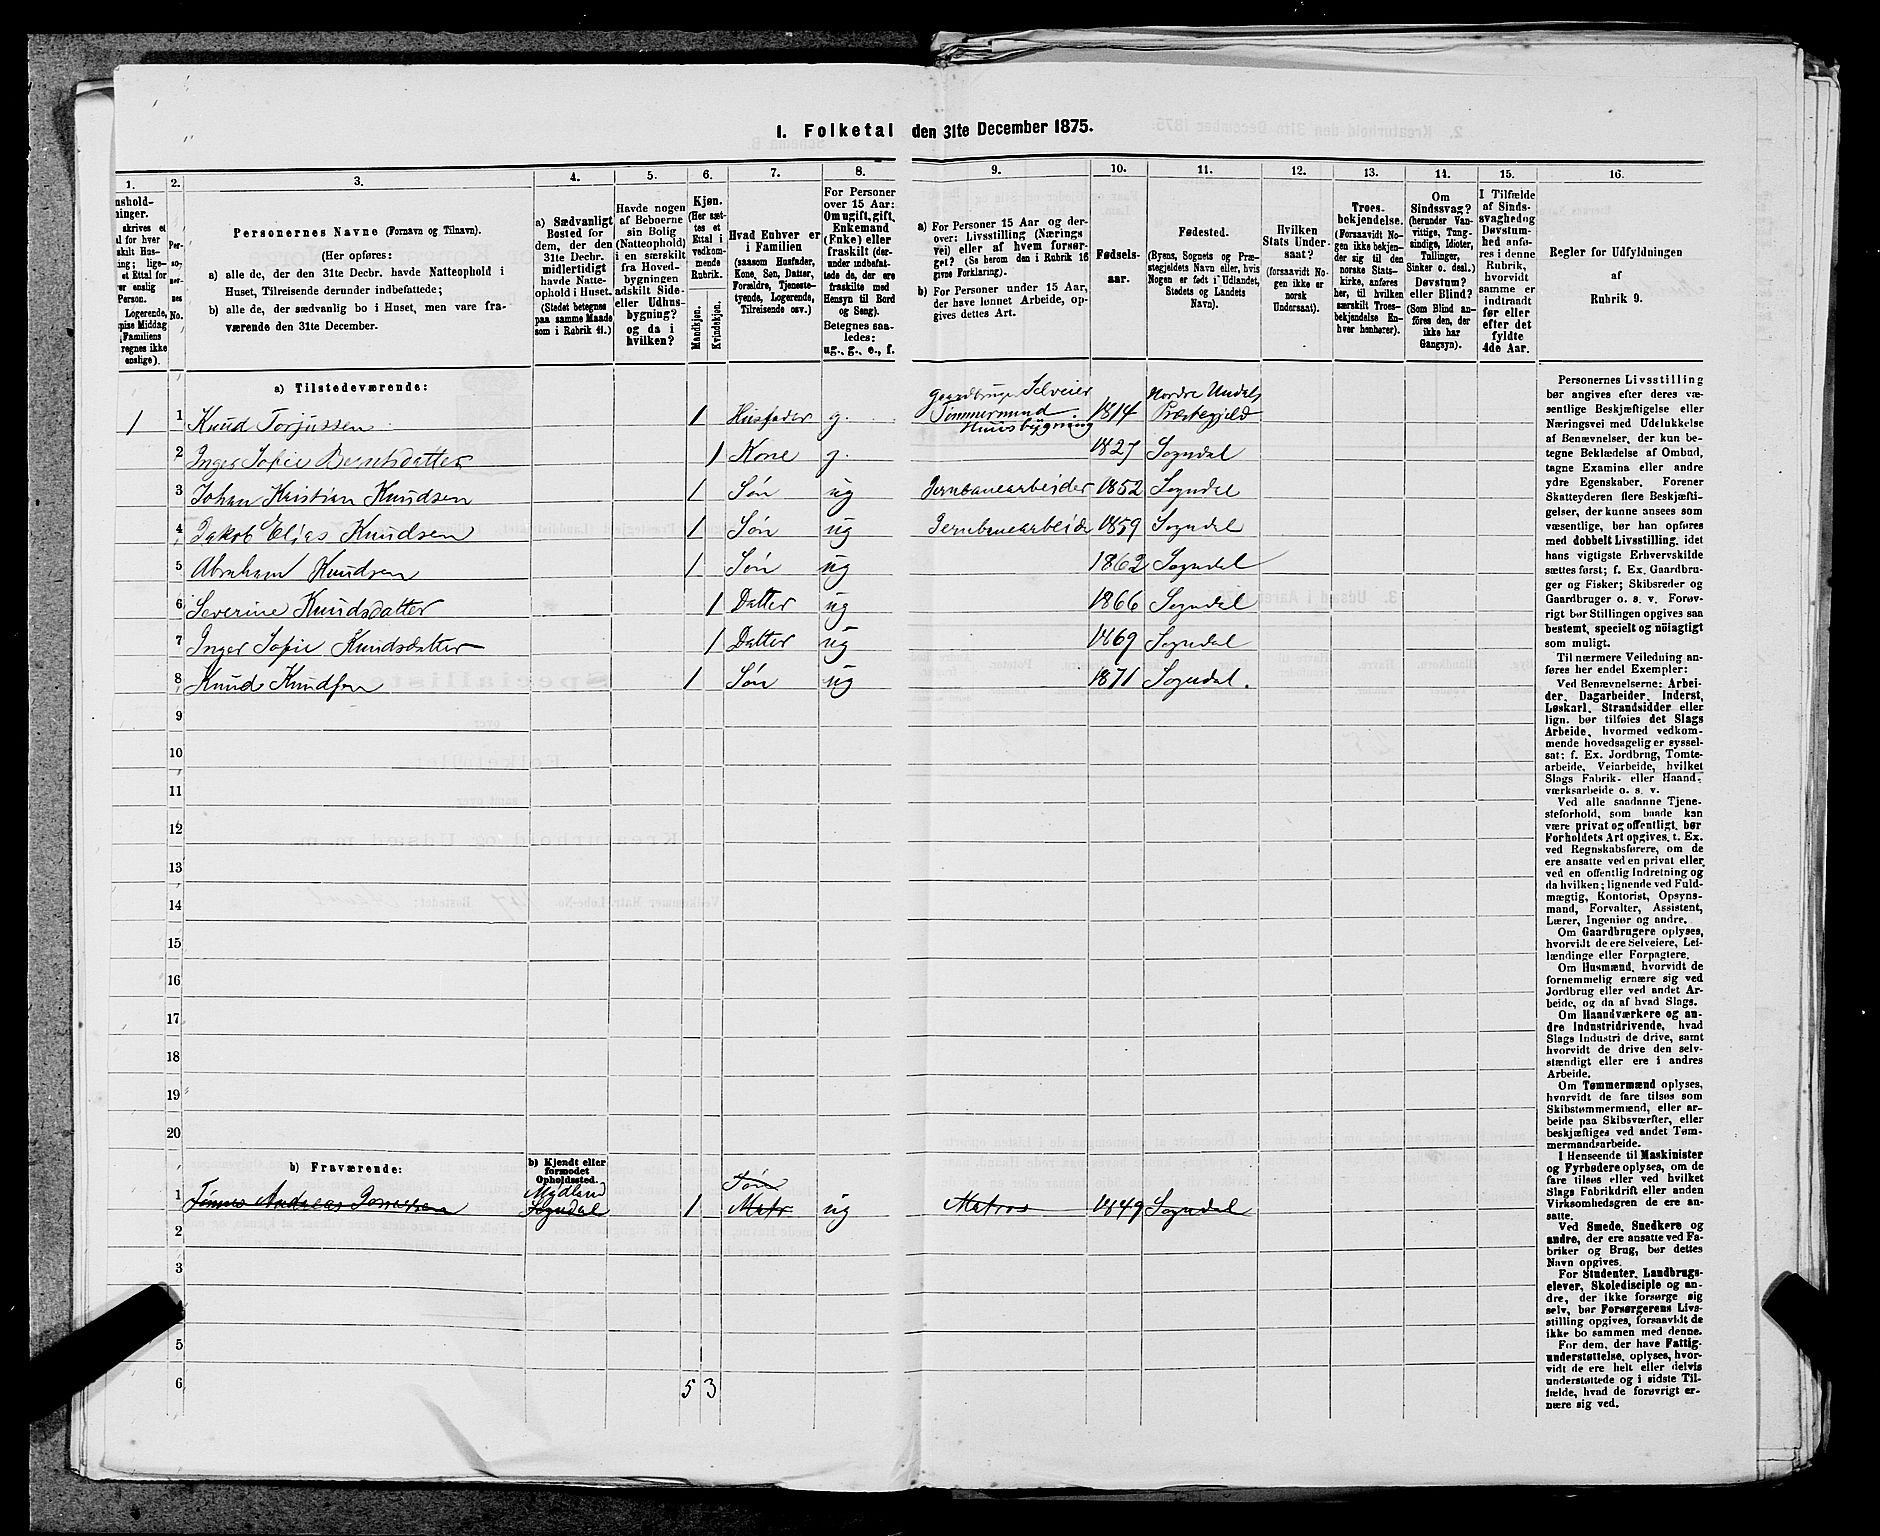 1. Folketal den 31te December 1875.
1. 2. 3. 4. 5. 6. 7. 8. 9. 10. 11. 12. 13. 14. 15. 16.
Per-
so-
ner-
nes
No.
Personernes Navne (Fornavn og Tilnavn).
(Her opføres:
a) alle de, der den 31te Decbr. havde Natteophold i
Huset, Tilreisende derunder indbefattede;
b) alle de, der sædvanlig bo i Huset, men vare fra-
værende den 31te December.
a) Sædvanligt
Bosted for
dem, der den
31te Decbr.
midlertidigt
havde Natte-
ophold i Huset.
(Stedet betegnes
paa samme Maade
som i Rubrik 11.)
Havde nogen
af Beboerne
sin Bolig
(Natteophold)
i en særskilt
fra Hoved-
bygningen
adskilt Side-
eller Udhus-
bygning?
og da i
hvilken?
Kjøn.
(Her sæt-
tes et
Ettal i
vedkom-
mende
Rubrik.
Mandkjøn.
Kvindekjøn.
Hvad Enhver er
i Familien
(saasom Husfader,
Kone, Søn, Datter,
Forældre, Tjeneste-
tyende, Logerende,
Tilreisende osv.)
For Personer
over 15 Aar:
Om ugift, gift,
Enkemand
(Enke) eller
fraskilt (der-
under indbefat-
tede de, der ere
fraskilte med
Hensyn til Bord
og Seng).
Betegnes saa-
ledes:
ug., g., e., f.
a) For Personer 15 Aar og der-
over: Livsstilling (Nærings
vei) eller af hvem forsør-
get? (Se herom den i Rubrik 16
givne Forklaring).
b) For Personer under 15 Aar,
der have lønnet Arbeide, op-
gives dettes Art.
Fødsels-
aar.
Fødested.
(Byens, Sognets og Præ-
stegjeldets Navn eller, hvis
Nogen er født i Udlandet,
Stedets og Landets
Navn).
Hvilken
Stats Under-
saat?
(forsaavidt No-
gen ikke er
norsk
Undersaat).
Troes-
bekjendelse.
(Forsaavidt No-
gen ikke bekjen-
der sig til den
norske Stats-
kirke, anføres
her, til hvilken
særskilt Troes-
bekjendelse En-
hver henhører).
Om
Sindssvag?
(herunder Van-
vittige, Tung-
sindige, Idioter,
Tullinger,
Sinker o. desl.)
Døvstum?
eller Blind?
(Som Blind an-
føres den, der
ikke har
Gangsyn).
I Tilfælde
af Sinds-
svaghed og
Døvstum-
hed anfø-
res i denne
Rubrik,
hvorvidt
samme er
indtraadt
før eller
efter det
fyldte
4de Aar.
Regler for Udfyldningen
af
Rubrik 9.
a) Tilstedeværende:
Gaardbruger Selveier Nordre Undals
1 1 Knud Torjussen 1 Husfader g. Tømmermand 1814 Præstegjeld
Huusbygning
2 Inger Sofie Berntsdatter 1 Kone g. 1827 Sogndal
3 Johan Kristian Knudsen 1 Søn ug Jernbanearbeider 1852 Sogndal
4 Jakob Elias Knudsen 1 Søn ug Jernbanearbeide 1859 Sogndal
5 Abraham Knudsen 1 Søn ug 1862 Sogndal
6 Severine Knudsdatter 1 Datter ug 1866 Sogndal
7 Inger Sofie Knudsdatter 1 Datter ug 1869 Sogndal
8 Knud Knudsen 1 Søn ug 1871 Sogndal.
9
10
11
12
13
14
15
16
17
18
19
20
b) Fraværende:
b) Kjendt eller
formodet
Opholdssted.
Mydland Søn
1 Tønnes Andreas 1 Matr ug Matros 1849 Sogndal
Sogndal
2
3
5
6 5 3
Personernes Livsstilling
bør angives efter deres væ-
sentlige Beskjæftigelse eller
Næringsvei med Udelukkelse
af Benævnelser, der kun be-
tegne Beklædelse af Ombud,
tagne Examina eller andre
ydre Egenskaber. Forener
Skatteyderen flere Beskjæfti-
gelser, der kunne ansees som
væsentlige, bør han opføres
med dobbelt Livsstilling, idet
hans vigtigste Erhvervskilde
sættes først; f. Ex. Gaardbru-
ger og Fisker; Skibsreder og
Gaardbruger o. s. v. Forøv-
rigt bør Stillingen opgives saa
bestemt, specielt og nöiagtigt
som muligt.
Til nærmere Veiledning an-
føres her endel Exempler:
Ved Benævnelserne: Arbei-
der, Dagarbeider, Inderst,
Løskarl, Strandsidder eller
lign. bør tilføies det Slags
Arbeide, hvormed vedkom-
mende hovedsagelig er syssel-
sat: f. Ex. Jordbrug, Tomte-
arbeide, Veiarbeide, hvilket
Slags Fabrik- eller Haand-
værksarbeide o. s. v.
Ved alle saadanne Tjene-
steforhold, som baade kan
være privat og offentligt, bør
Forholdets Art opgives, t. Ex.
ved Regnskabsførere, om de
ere ansatte ved en privat eller
ved en offentlig Indretning og
da hvilken; lignende ved Fuld-
mægtig, Kontorist, Opsyns-
mand, Forvalter, Assistent,
Lærer, Ingeniør og andre.
Om Gaardbrugere oplyses,
hvorvidt de ere Selveiere, Lei-
lændinge eller Forpagtere.
Om Husmænd, hvorvidt de
fornemmelig ernære sig ved
Jordbrug eller ved andet Ar-
beide, og da af hvad Slags.
Om Haandværkere og an-
dre Industridrivende, hvad
Slags Industri de drive, samt
hvorvidt de drive den selv-
stændigt eller ere i andres
Arbeide.
Om Tømmermænd oplyses,
hvorvidt de fare tilsøs som
Skibstømmermænd, eller ar-
beide paa Skibsværfter, eller
beskjæftiges ved andet Tøm-
mermandsarbeide.
I Henseende til Maskinister
og Fyrbødere oplyses, om de
fare tilsøs eller ved hvilket
Slags Fabrikdrift eller anden
Virksomhedsgren de ere an-
satte.
Ved Smede, Snedkere og
andre, der ere ansatte ved Fa-
briker og Brug, bør dettes
Navn opgives.
For Studenter, Landbrugs-
elever, Skoledisciple og an-
dre, der ikke forsørge sig
selv, bør Forsørgerens Livs-
stilling opgives, forsaavidt de
ikke bo sammen med denne.
For dem, der have Fattig-
understøttelse, oplyses, hvor-
vidt de ere helt eller delvis
understøttede og i sidste Til-
fælde, hvad de forøvrigt er-
nære sig ved.